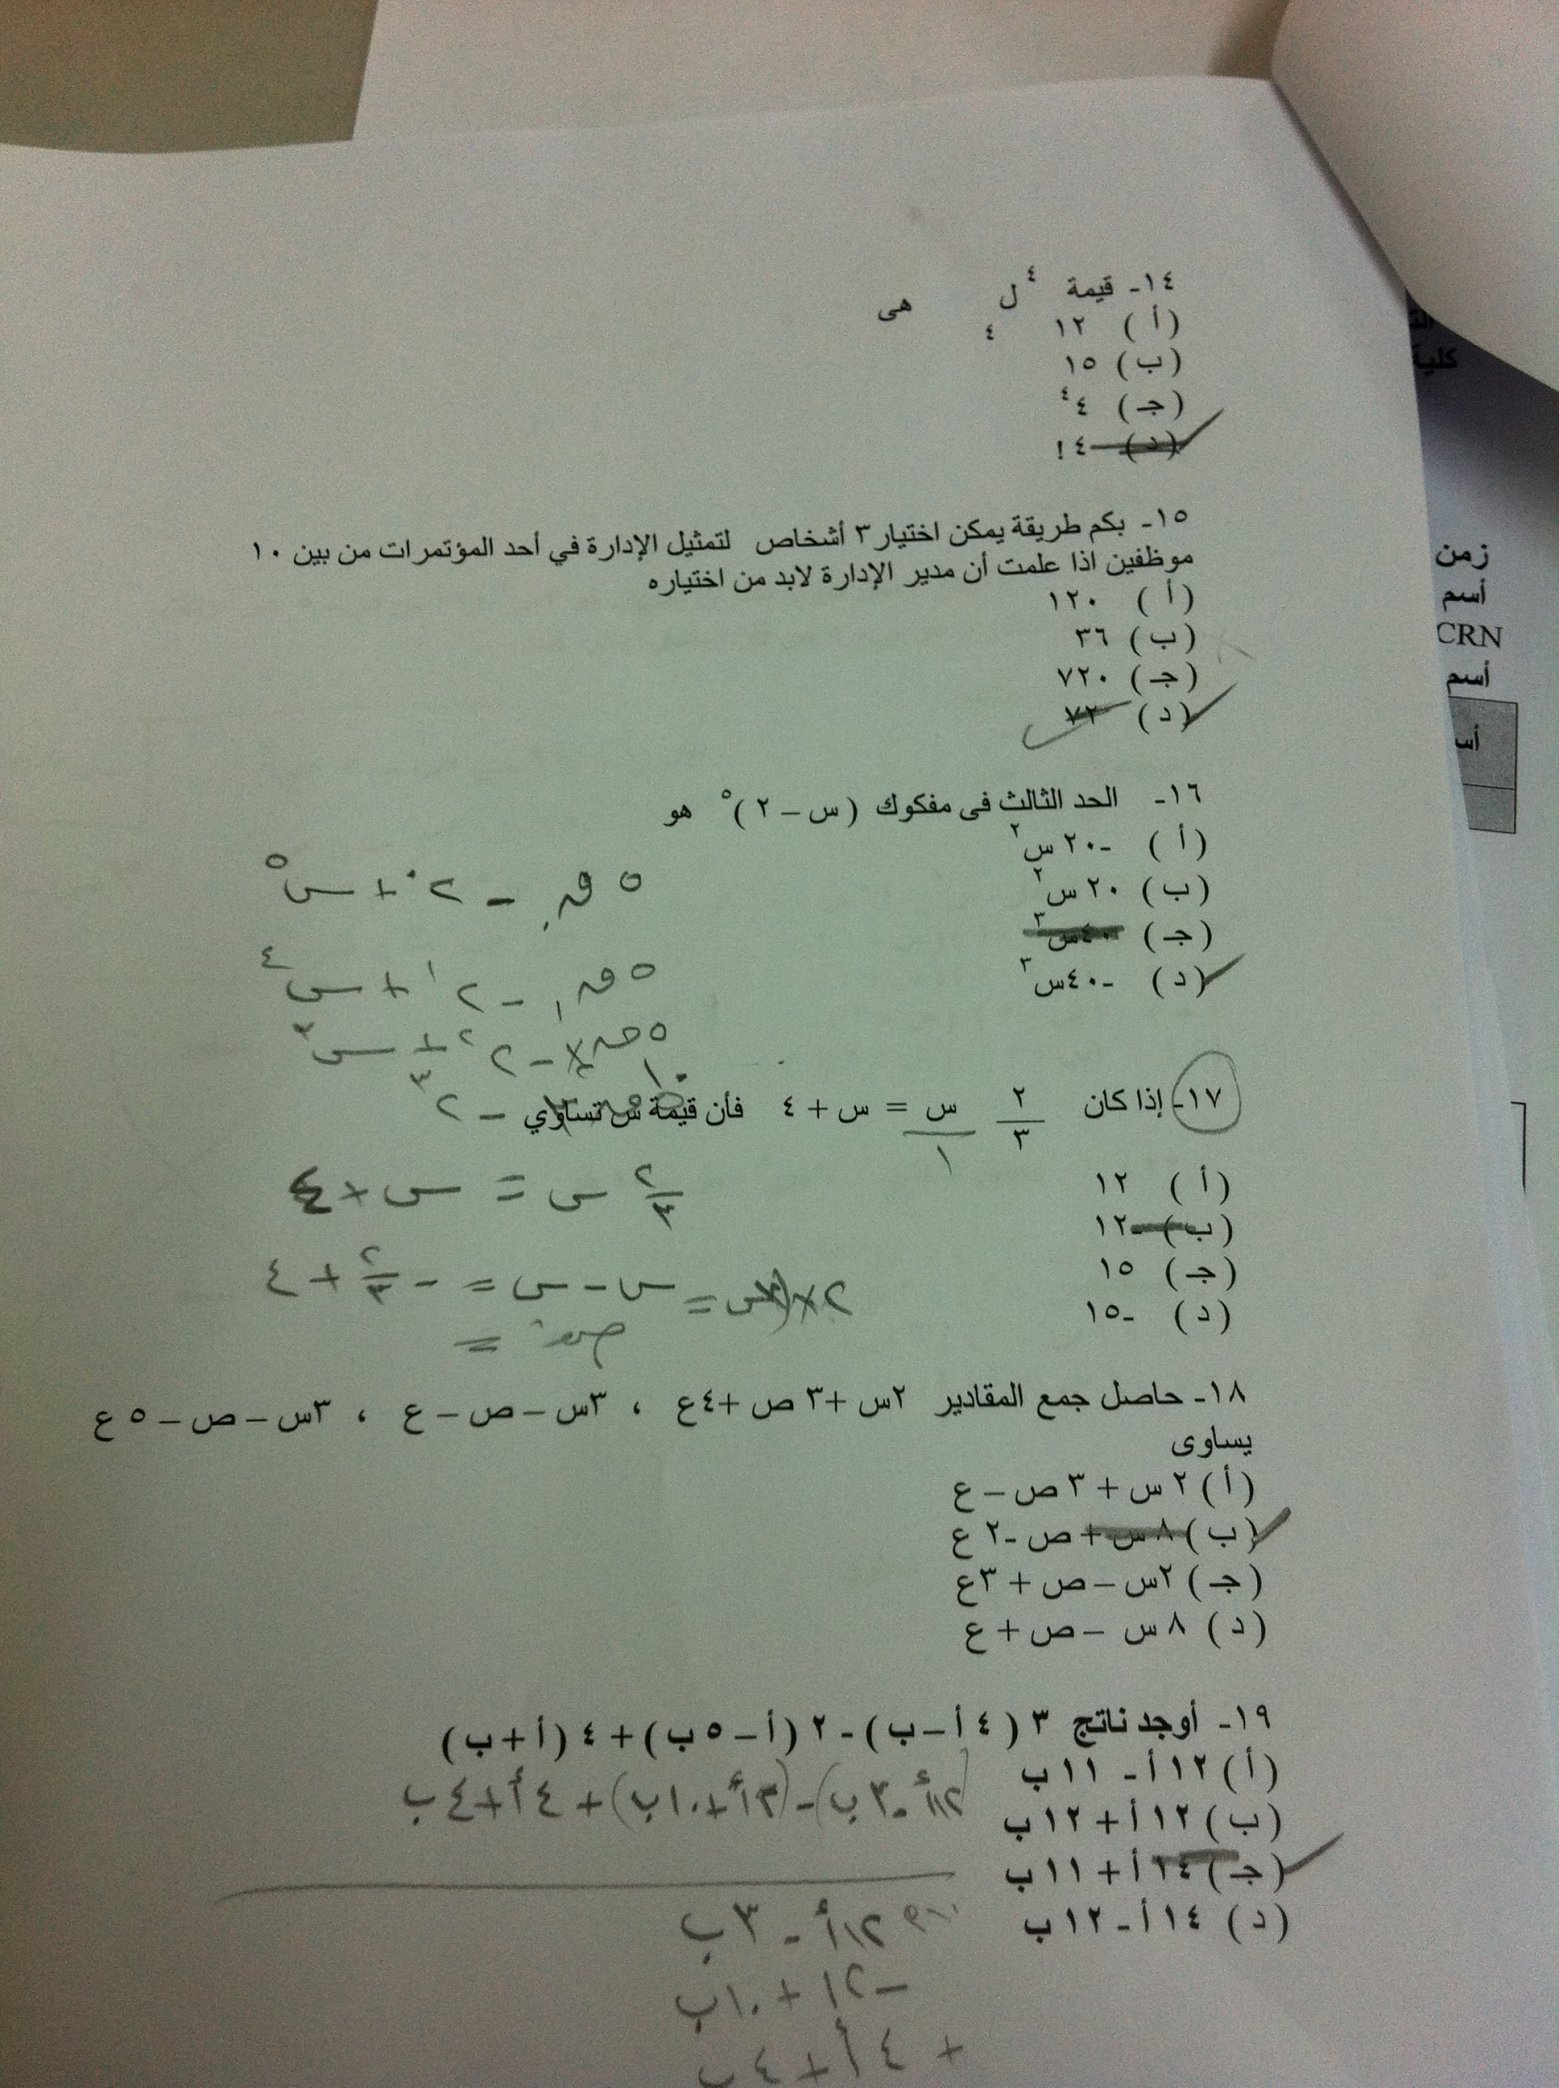 ١٤- قيمة ٤ل٤ هى
(أ) ١٢
(ب) ١٥
(جـ) ٤٤
(د) ٤!
١٥- بكم طريقة يمكن اختيار ٣ أشخاص لتمثيل الإدارة في أحد المؤتمرات من بين ١٠
موظفين اذا علمت أن مدير الإدارة لابد من اختياره
(أ) ١٢٠
(ب) ٣٦
(جـ) ٧٢٠
(د) ٧٢
١٦- الحد الثالث فى مفكوك (س – ٢)٥ هو
(أ) -٢٠ س٢
(ب) ٢٠ س٢
(جـ) ٤٠س٣
(د) -٤٠س٣
٥ق٠ - ٢٠ + س٥
٥ق١ - ٢١ + س٤
٥ق٢ - ٢٢ + س٣
١٧- إذا كان ٢/٣ س/١ = س + ٤ فأن قيمة س تساوي
(أ) ١٢
(ب) -١٢
(جـ) ١٥
(د) -١٥
٢/٣ س = س + ٤
= س - س = - ٢/٣ + ٤
١٨- حاصل جمع المقادير ٢س +٣ ص +٤ع ، ٣س – ص – ع ، ٣س – ص – ٥ ع
يساوى
(أ) ٢ س + ٣ ص – ع
(ب) ٨ س + ص -٢ ع
(جـ) ٢س – ص + ٣ع
(د) ٨ س – ص + ع
١٩- أوجد ناتج ٣ (٤ أ – ب) - ٢ (أ – ٥ ب) + ٤ (أ + ب)
(أ) ١٢ أ - ١١ ب
(ب) ١٢ أ + ١٢ ب
(جـ) ١٤ أ + ١١ ب
(د) ١٤ أ - ١٢ ب
(١٢أ - ٣ب) - (٢أ + ١٠ب) + ٤أ + ٤ب
١٢أ - ٣ب
- ٢أ + ١٠ب
+ ٤أ + ٤ب
كلية
زمن
أسم
CRN
أسم